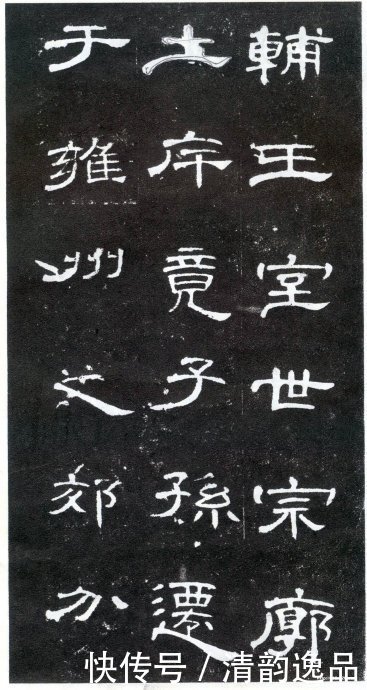 輔王室世宗廓
土斥竟子孫遷
于雍州之郊分
快传号 / 清韵逸品